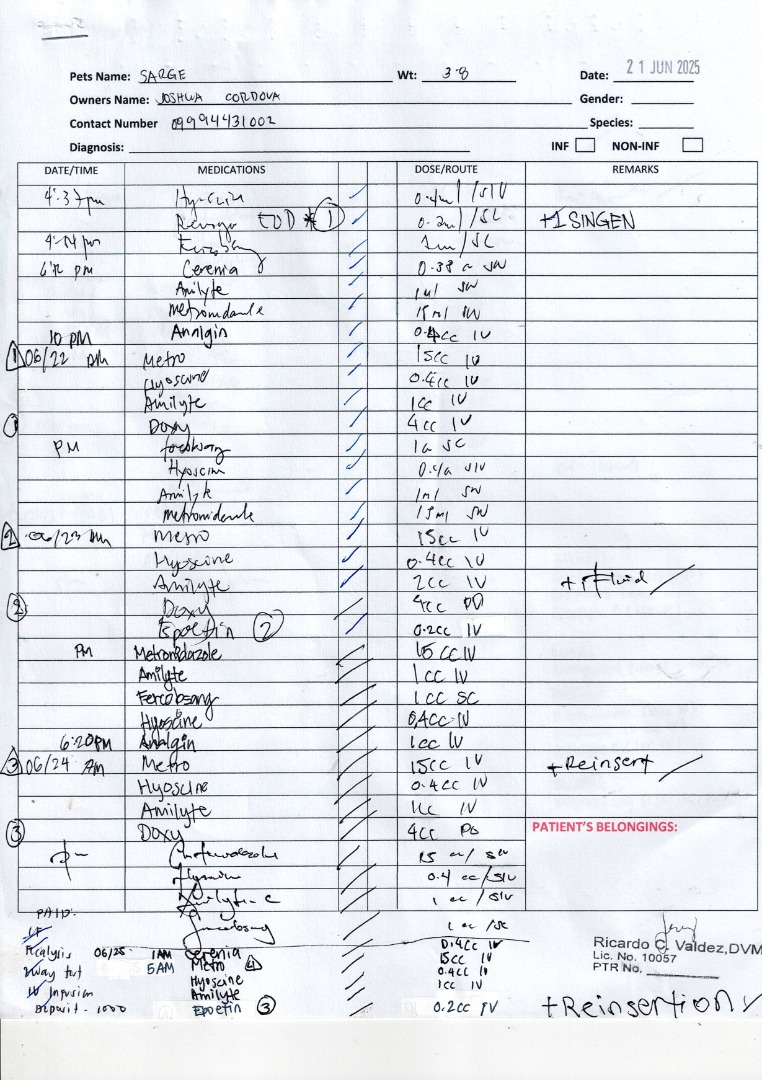 Pets Name: SARGE Wt: 3.8 Date: 21 JUN 2025
Owners Name: JOSHUA CORDOVA Gender:
Contact Number 09994431002 Species:
Diagnosis: INF NON-INF
DATE/TIME MEDICATIONS DOSE/ROUTE REMARKS
4:37pm Hyoscin 0.4ml/SIV
EOD * 1 0.2ml/SC +1 SINGEN
1ml/SC
6:12 pm Cerenia 0.38
Amilyte 1ml
Metronidazole 15ml
10 PM Analgin 0.4cc IV
1 06/22 AM Metro 15cc IV
Hyoscine 0.4cc IV
Amilyte 1cc IV
1 Doxy 4cc IV
PM SC
Hyoscin SIV
Amilyte 1ml
Metronidazole 15ml
2 06/23 AM Metro 15cc IV
Hyoscine 0.4cc IV
Amilyte 2cc IV +1 Fluid
2 Doxy 4cc PO
Epoetin 2 0.2cc IV
PM Metronidazole 15 CC IV
Amilyte 1CC IV
Fercobsang 1CC SC
Hyoscine 0.4CC IV
6:20PM Analgin 1cc IV
3 06/24 AM Metro 15cc IV +Reinsert
Hyoscine 0.4cc IV
Amilyte 1cc IV
3 Doxy 4cc PO
PATIENT'S BELONGINGS:
15 cc/
0.4 cc/SIV
1 cc/SIV
PAID: 1 cc/SC
06/25 1AM Cerenia 0.4cc IV
2way 5AM Metro 4 15cc IV
Hyoscine 0.4cc IV
IV Infusion Amilyte 1cc IV
Deposit - 1000 Epoetin 3 0.2cc IV
Ricardo C. Valdez, DVM
Lic. No. 10057
PTR No.
+Reinsertion